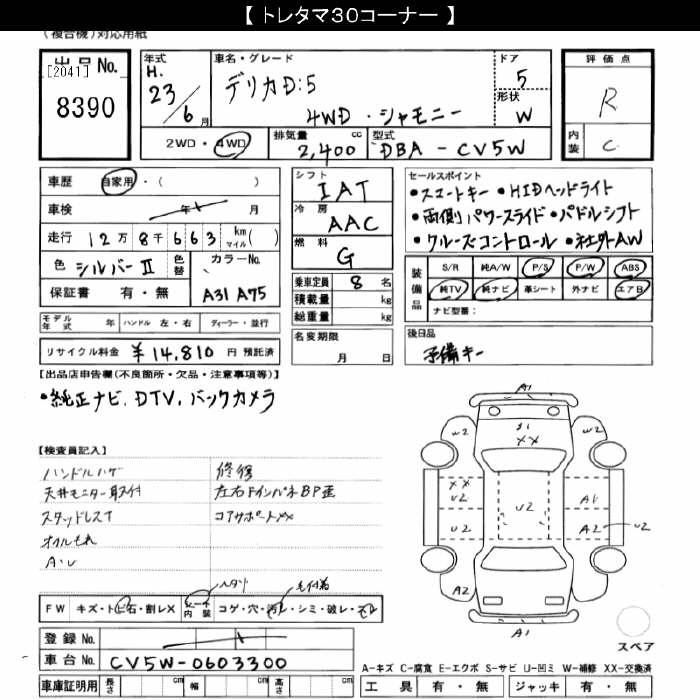 【 トレタマ30コーナー 】
(複合機)対応用紙
出品No.
[2041]
8390
年式
H.
23/6月
車名・グレード
デリカD:5
4WD・シャモニー
ドア
5
形状
W
評価点
R
内装
C
2WD・4WD
排気量
2,400 cc
型式
DBA - CV5W
車歴 自家用・( )
車検 年 月
走行 12万8千663 km マイル( )
色 シルバーⅡ
色替
カラーNo.
A31 A75
保証書 有・無
シフト
IAT
冷房
AAC
燃料
G
乗車定員 8 名
積載量 kg
総重量 kg
セールスポイント
・スマートキー ・HIDヘッドライト
・両側パワースライド ・パドルシフト
・クルーズコントロール ・社外AW
装備品
S/R 純A/W P/S P/W ABS
純TV 純ナビ 革シート 外ナビ エアB
ナビ型番:
モデル年式 年 ハンドル 左・右 ディーラー・並行
リサイクル料金 ¥14,810 円 預託済
名変期限
月 日
後日品
予備キー
【出品店申告欄(不良箇所・欠品・注意事項等)】
・純正ナビ、DTV、バックカメラ
【検査員記入】
ハンドルハゲ
天井モニター取付
スタッドレスT
オイルもれ
修復
左右ドインパネBP歪
コアサポートXX
FW キズ・トビ石・割レX
シート内装
コゲ・穴・汚レ・シミ・破レ・スレ
登録No.
車台No. CV5W-0603300
車庫証明用 長さ cm 幅 cm 高さ cm
A1
W2
W2
S1
XX
XX
U2
U2
U2
A1
A2
U2
A2
W2
A1
スペア
A-キズ C-腐食 E-エクボ S-サビ U-凹ミ W-補修 XX-交換済
工具 有・無 ジャッキ 有・無